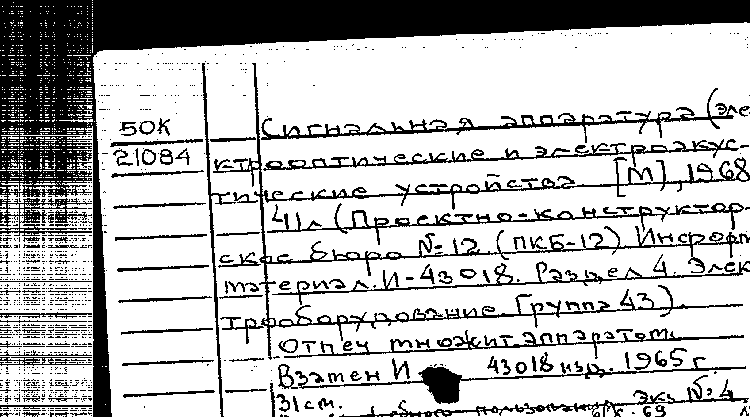 50К
21084
Сигнальная аппаратура (эле
ктрооптические и электроакус-
тические устройства [М], 1968
41л (Проектно-конструктор-
ское бюро №12 (ПКБ-12) Информ
материал И-43018. Раздел 4. Элек
трооборудование. Группа 43).
Отпеч множит.аппаратом.
Взамен И 43018 изд. 1965г.
31см.
пользования Экз №:4